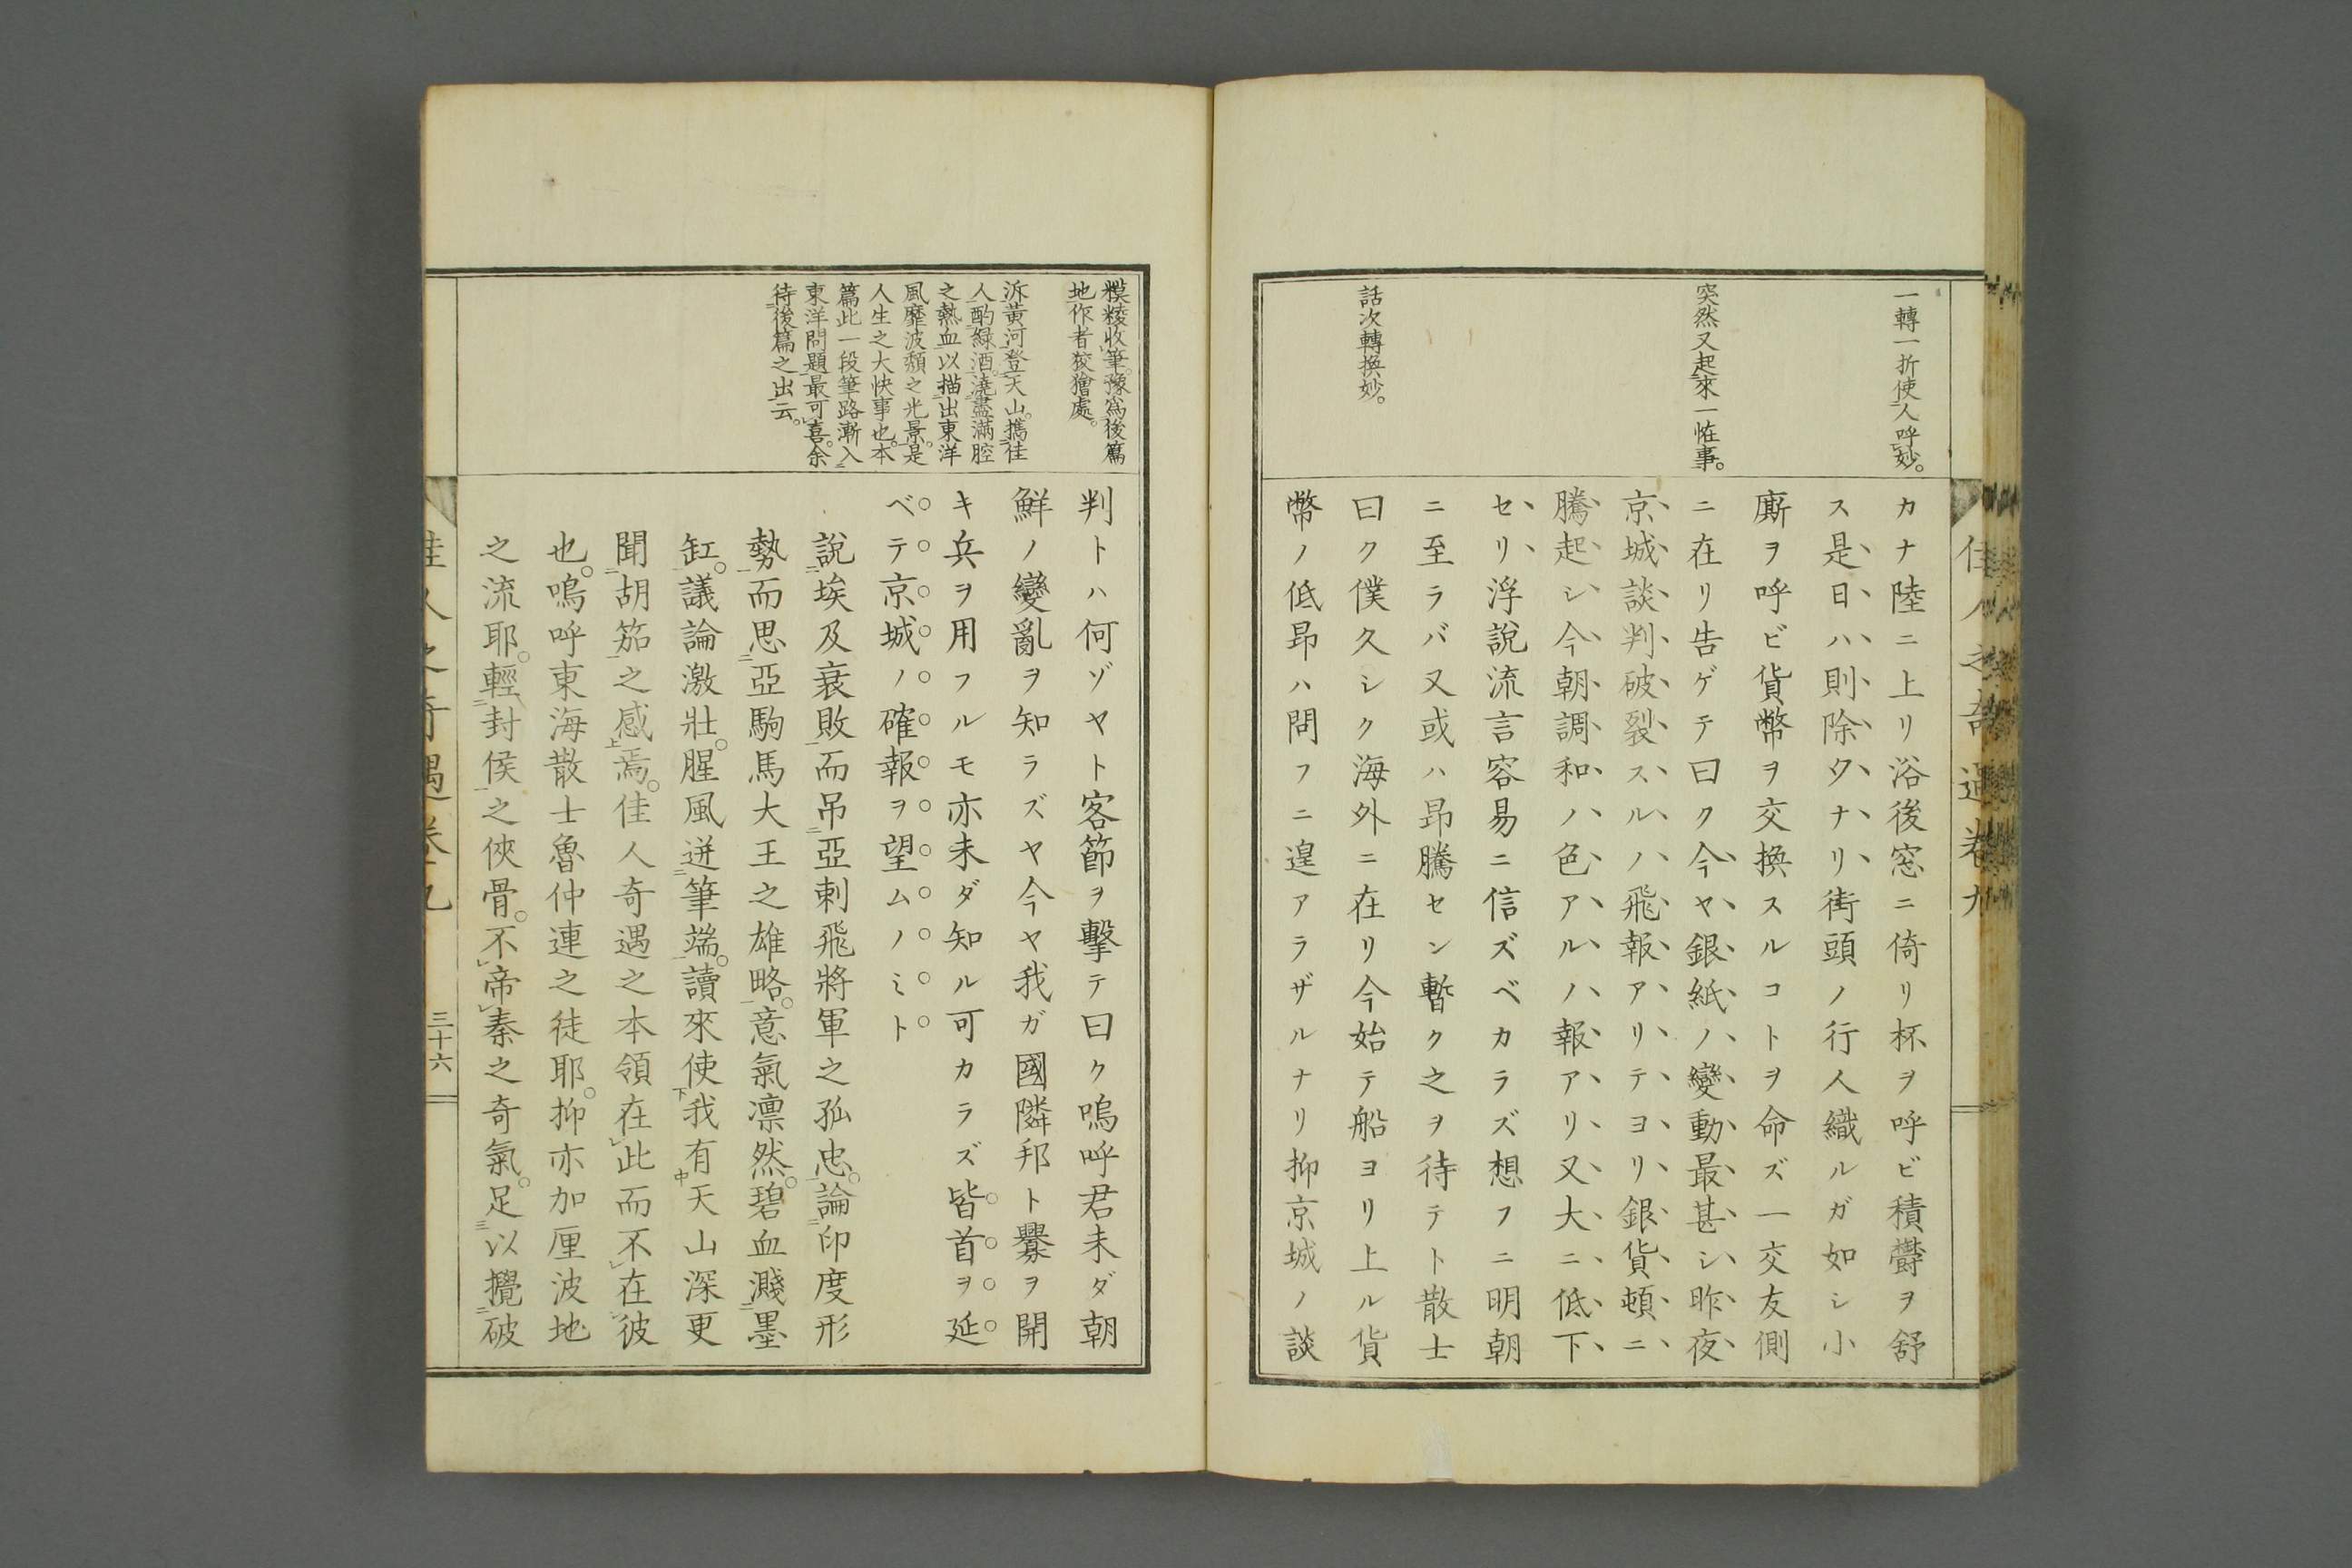 佳人之奇遇卷九
一轉一折使人呼妙。
突然又起來一恠事。
話次轉換妙。
カナ陸ニ上リ浴後窓ニ倚リ杯ヲ呼ビ積欝ヲ舒
ス是日ハ則除夕ナリ街頭ノ行人織ルガ如シ小
廝ヲ呼ビ貨幣ヲ交換スルコトヲ命ズ一交友側
ニ在リ告ゲテ曰ク今ヤ銀紙ノ變動最甚シ昨夜
京城談判破裂スルノ飛報アリテヨリ銀貨頓ニ
騰起シ今朝調和ノ色アルノ報アリ又大ニ低下
セリ浮說流言容易ニ信ズベカラズ想フニ明朝
ニ至ラバ又或ハ昻騰セン暫ク之ヲ待テト散士
曰ク僕久シク海外ニ在リ今始テ船ヨリ上ル貨
幣ノ低昻ハ問フニ遑アラザルナリ抑京城ノ談
糢糭收筆。豫寫後篇
地作者狡獪處。
泝黃河登天山。攜佳
人酌綠酒。澆盡滿腔
之熱血以描出東洋
風靡波頽之光景。是
人生之大快事也。本
篇此一段筆路漸入
東洋問題最可喜。余
待後篇之出云。
判トハ何ゾヤト客節ヲ擊テ曰ク嗚呼君未ダ朝
鮮ノ變亂ヲ知ラズヤ今ヤ我ガ國隣邦ト釁ヲ開
キ兵ヲ用フルモ亦未ダ知ル可カラズ皆首ヲ延
ベテ京城ノ確報ヲ望ムノミト
說埃及衰敗而吊亞剌飛將軍之孤忠。論印度形
勢而思亞駒馬大王之雄略。意氣凛然。碧血濺墨
缸。議論激壯。腥風迸筆端。讀來使我有天山深更
聞胡笳之感焉。佳人奇遇之本領在此而不在彼
也。嗚呼東海散士魯仲連之徒耶。抑亦加厘波地
之流耶。輕封侯之俠骨。不帝秦之奇氣。足以攪破
佳人之奇遇卷九
三十六